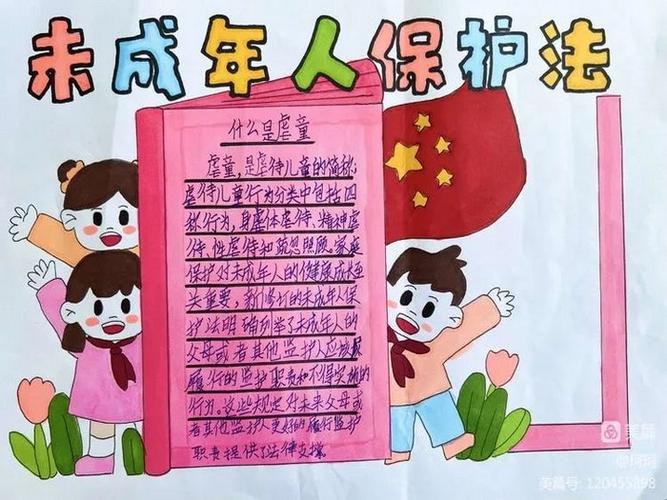 未成年人保护法
什么是虐童
虐童,是虐待儿童的简称.
虐待儿童行为分类中包括四
种行为,身体虐待.精神虐
待,性虐待和疏忽照顾.家庭
保护对未成年人的健康成长至
关重要,新修订的未成年人保
护法明确列举了未成年人的
父母或者其他监护人应该
履行的监护职责和不得实施的
行为.这些规定对未来父母或
者其他监护人更好的履行监护
职责提供了法律支撑.
美篇
美篇号: 120455898